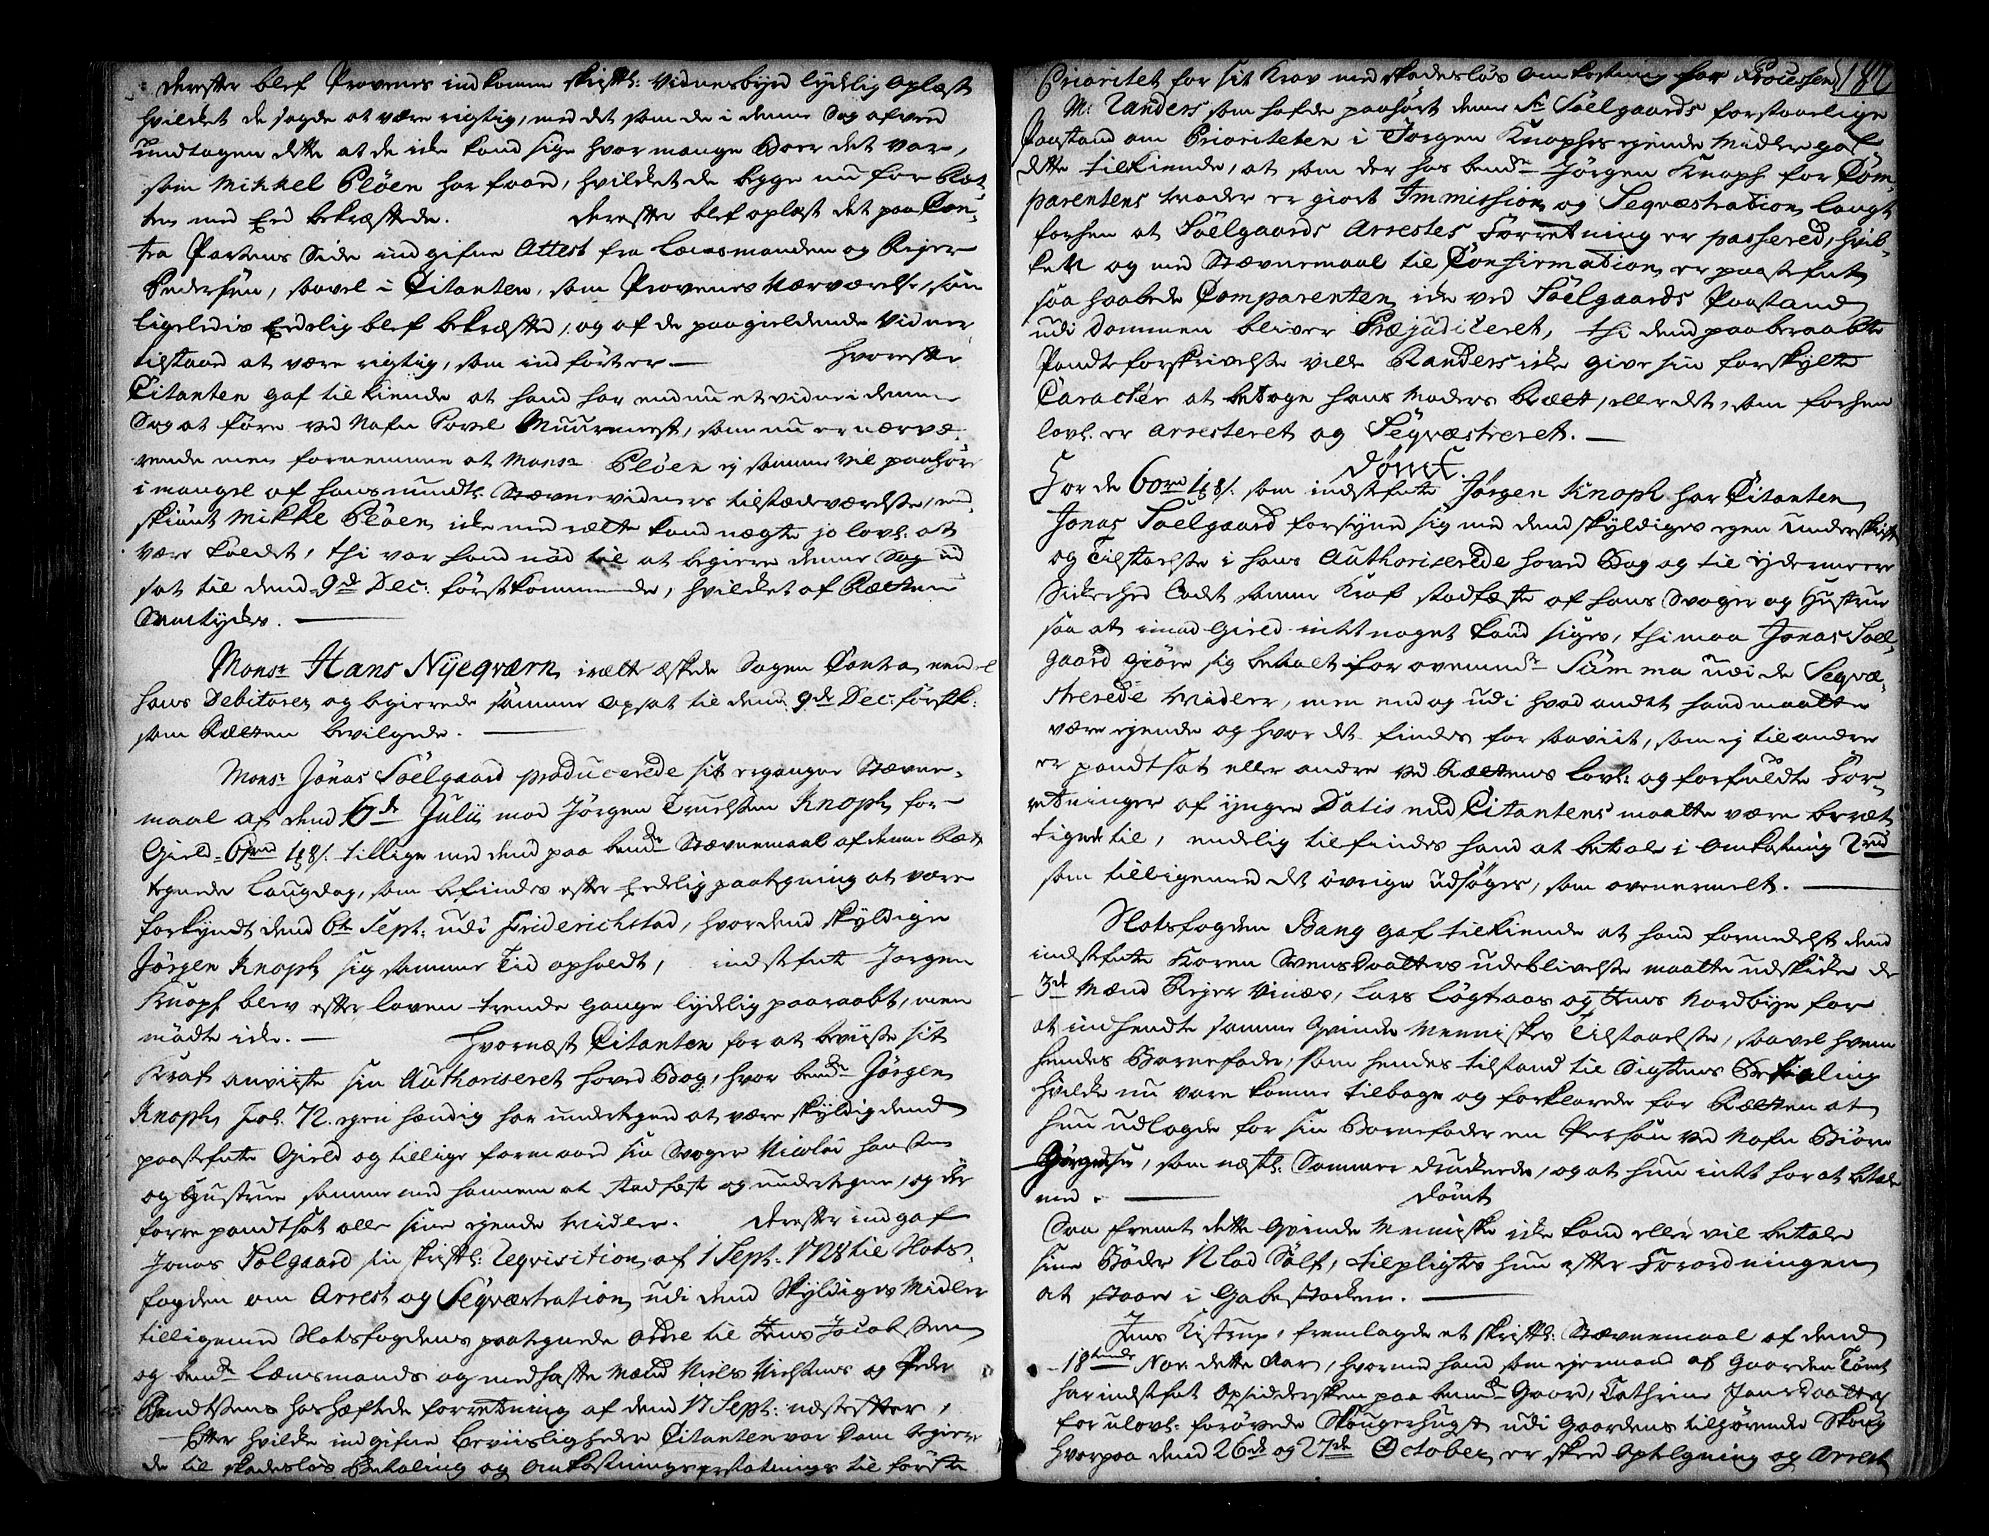 Derefter blef Provenes indkomne skriftl: Vidnesbyrd lydelig oplæst
hvilket de sagde at være rigtig, med det som de i denne Sag afveed
undtagen dette at de icke kand sige hvor mange Boer det var,
som Mikkel Pløen har faaed, hvilket de begge nu for Ret-
ten med Eed bekræftede. Derefter blef oplæst det paa Con-
tra Partens Side indgifne Attest fra Lænsmanden og Rejer
Pedersen, saavel i Citanten, som Provenes Nærværelse, som
ligeledis Eedelig blef bekræfted, og af de paagieldende Vidner
tilstaaed at være rigtig, som indført er — Hvorefter
Citanten gaf tilkiende at hand har endnu et vidne i denne
Sag at føre ved Nafn Povel Muurmest, som nu er nærvæ-
rende men fornemme at Monsr Pløen ej samme vil paahøre
i mangel af hans mundtl: Stævnevidners tilstædeværelse, end-
skiønt Mikkel Pløen icke med rætte kand nægte jo lovl: at
være kaldet, thi var hand nød til at begiere denne Sag ud
sat til dend 9de Dec: førstkommende, hvilket af Rætten
Samtyckes. —
Monsr Hans Nyeqværn irætte æskede Sagen Contra een deel
hans Debitorer og begierede samme opsat til denn 9de Dec: førstk:
som Rætten bevilgede. —
Monsr Jonas Søelgaard producerede sit ergangne Stævne-
maal af dend 6de Julii mod Jørgen Truelsen Knoph for
Gield 60rd 1 ₰ 8 s. tillige med dend paa bemte Stævnemaal af denne Ræt
tegnede Laugdag, som befindes efter Eedelig paategning at være
forkyndt dend 6te Sept: udi Friderichstad, hvor dend skyldige
Jørgen Knoph sig samme Tid opholdt, indstefnte Jørgen
Knoph blev efter loven trende gange lydelig paaraabt, men
mødte icke. — Hvornæst Citanten for at beviise sit
Kraf anviiste sin Authoriseret hoved Bog, hvor bemte Jørgen
Knoph, Fol: 72. egen hændig har undertegned at være skyldig dend
paastefnte Gield og tillige formaaed sin Svoger Nicolai Hansen
og Hustrue samme med hannem at stadfæste og undertegne, og der
forre pandtsat alle sine ejende Midler. Derefter indgaf
Jonas Sølgaard sin skriftl: Reqvisition af 1 Sept: 1728 til Stats-
fogden om Arrest og Seqvæstration udi dend Skyldiges Midler
tilligemed Statsfogdens paategnede Ordre til Jens Jacobsen
og bemte Lænsmands og medhafte Mænd Niels Nielsens og Peder
Bendtsens hos hæftede forretning af dend 17 Sept: næstefter,
Efter hvilke indgifne Beviisligheder Citanten var Dom begier-
de til skadesløs Betaling og Omkostnings erstatnings til første
182
Prioritet for sit Krav med skadesløs omkostning for Processen
Mr Randers som hafde paahørt denne Sr Søelgaards forstaaelige
Paastand om Prioriteten i Jørgen Knophs ejende Midler gaf
dette tilkiende, at som der hos bemte Jørgen Knoph for Com-
parentens Moder er giort Immission og Seqvæstration langt
forhen at Søelgaards Arrestes Forretning er passered, hvil-
ken og med Stævnemaal til Confirmation er paastefnt,
saa haabede Comparenten icke ved Søelgaards Paastand
udi Dommen bliver Præjudiceret, thi dend paaberaabte
Pandteforskrivelse ville Randers icke give sin forskylte
Caracter at betage hans Moders Rætt, eller det, som forhen
lovl: er arresteret og Seqvæstreret. —
Dømt.
For de 60rd 1 ₰ 8 s. som indstefnte Jørgen Knoph har Citanten
Jonas Søelgaard forsyned sig med dend skyldiges egen underskrift
og Tilstaaelse i hans Authoriserede hoved Bog og til ydermeere
Sickerhed ladet samme Kraf stadfæste af hans Svoger og Hustrue
saa at imod Gield intet noget kand siges, thi maa Jonas Søel-
gaard giøre sig betalt for ovenmte Summa udi de Seqvæ-
strerede Midler, men endog udi hvad andet hand maatte
være ejende og hvor det findes for saaviit, som ej til andre
er pandtsat eller andre ved Rættens lovl: og forfuldte For-
retninger af yngre Datis end Citantens maatte være beræt-
tiget til, endelig tilfindes hand at betale i Omkostning 2rd
som tilligemed det øvrige udsøges, som ovenermelt. —
Statsfogden Bang gaf tilkiende at hand formedelst dend
indstefnte Karen Svensdaatters udeblivelse maatte udskicke de
3de Mænd Rejer Vinæs, Lars Løgtaas og Jens Nordbye for
at indhendte samme Qvinde Menniskes Tilstaaelse, saavel hvem
hendes Barnefader, som hendes tilstand til Sigtens Betaling
hvilke nu vare komne tilbage og forklarede for Rætten at
hun udlagde for sin Barnefader en Person ved Nafn Biørn
Jørgensen, som næstl: Sommer druknede, og at hun intet har at betale
med. — Dømt
Saa fremt dette Qvinde Menniske icke kand eller vil betale
sine Bøder 12 Lod Sølf, tilpligtes hun efter Forordningen
at staae i Gabestocken. —
Jens Kistrup, fremlagde et skriftl: Stævnemaal af dend
18tende Nov: dette Aar, hvormed hand som ejermand af Gaarden Tømt
har indstefnt Opsiddersken paa bemte Gaard, Cathrine Jansdaatter
for ulovl: forøvede Skougerhugst udi Gaardens tilhørende Skoug
hvorpaa dend 26de og 27de October, er skeed Optegning og Arrest